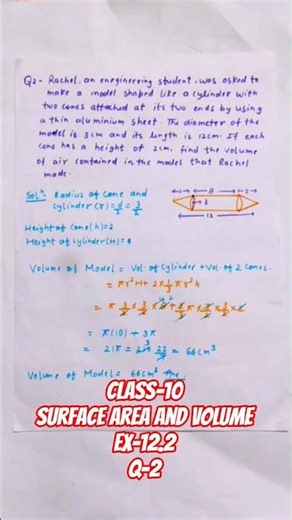 Q2- Rachel, an enegineering student, was asked to
make a model shaped like a cylinder with
two cones attached at its two ends by using
a thin aluminium sheet. The diameter of the
model is 3cm and its length is 12cm. If each
cone has a height of 2cm, find the volume
of air contained in the model that Rachel
made.
Solⁿ: Radius of Cone and
Cylinder (r) = d/2 = 3/2
Height of Cone (h) = 2
Height of Cylinder (H) = 8
8
12
Volume of Model = Vol. of Cylinder + Vol. of 2 Cones.
= πr²H + 2 × 1/3 πr²h
= π(18) + 3π
= 21π = 21 × 22/7 = 66cm³
Volume of Model = 66cm³
CLASS-10
SURFACE AREA AND VOLUME
EX-12.2
Q-2